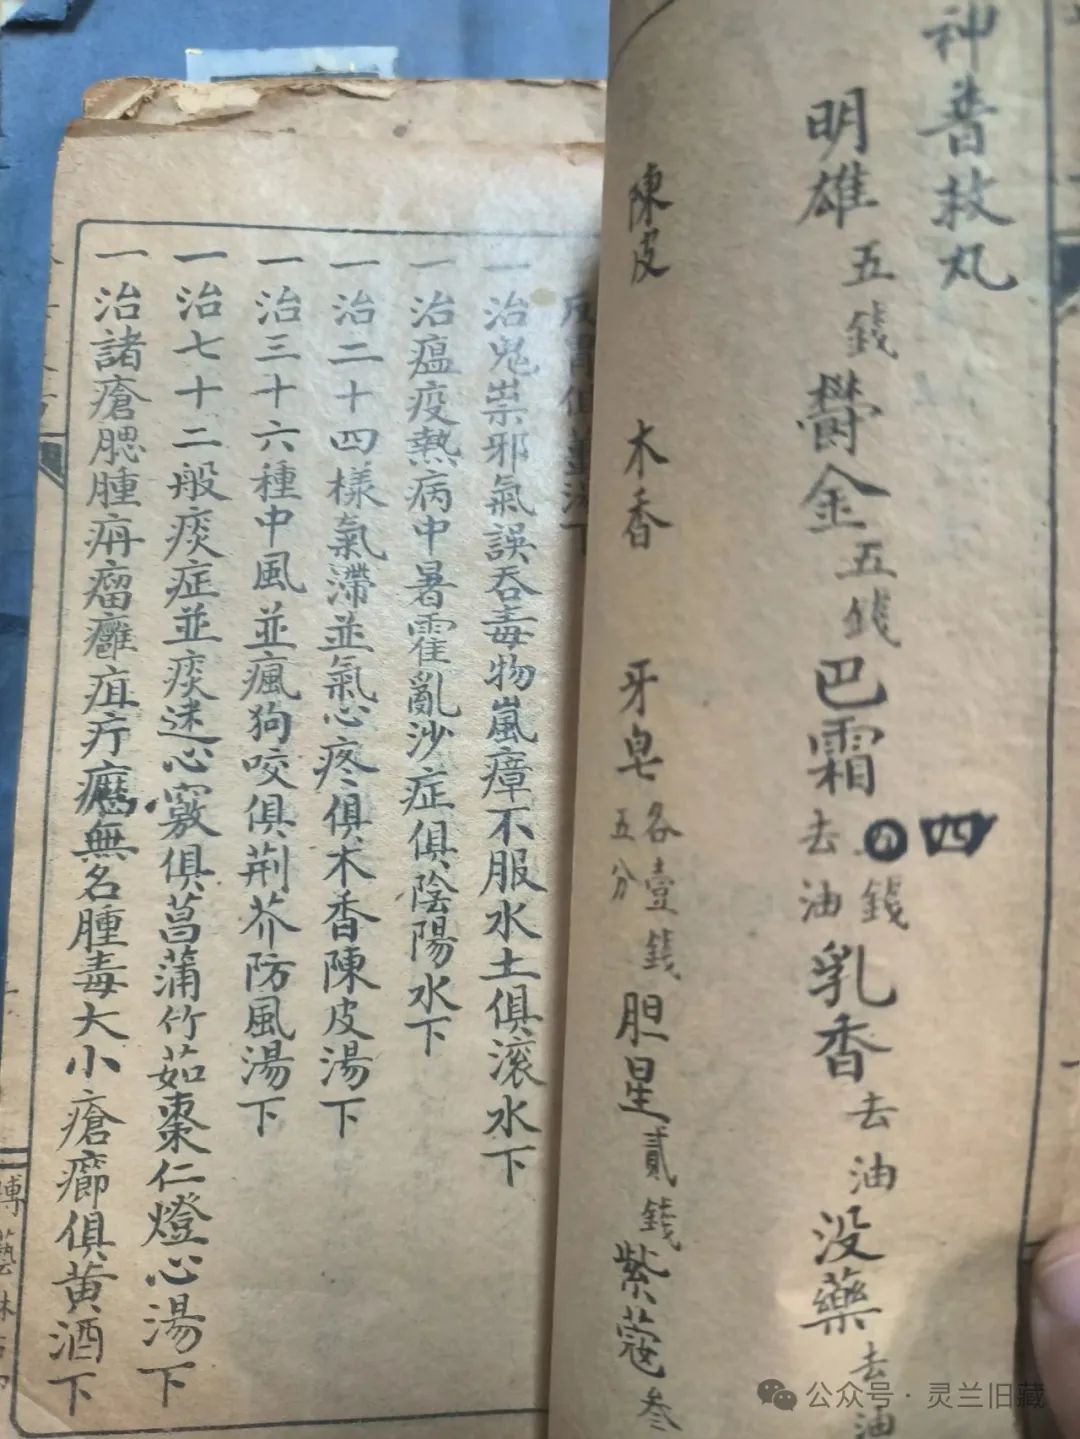 神普救丸
明雄五錢鬱金五錢巴霜去油四錢乳香去油没藥去油
陳皮 木香 牙皂各壹錢五分胆星貳錢紫蔻叁
一治鬼祟邪氣誤吞毒物嵐瘴不服水土俱滚水下
一治瘟疫熱病中暑霍亂沙症俱陰陽水下
一治二十四樣氣滯並氣心疼俱木香陳皮湯下
一治三十六種中風並瘋狗咬俱荆芥防風湯下
一治七十二般痰症並痰迷心竅俱菖蒲竹茹棗仁燈心湯下
一治諸瘡腮腫痈瘤癰疽疔無名腫毒大小瘡癤俱黄酒下
公众号·灵兰旧藏